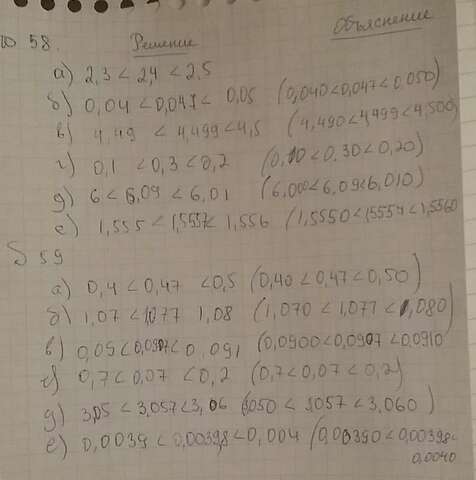 58. Решение Объяснение
а) 2,3 < 2,4 < 2,5
б) 0,04 < 0,047 < 0,05 (0,040 < 0,047 < 0,050)
в) 4,49 < 4,499 < 4,5 (4,490 < 4,499 < 4,500)
г) 0,1 < 0,3 < 0,2 (0,10 < 0,30 < 0,20)
д) 6 < 6,09 < 6,01 (6,000 < 6,09 < 6,010)
е) 1,555 < 1,5557 < 1,556 (1,5550 < 1,5557 < 1,5560
59
а) 0,4 < 0,47 < 0,5 (0,40 < 0,47 < 0,50)
б) 1,07 < 1,077 1,08 (1,070 < 1,077 < 1,080)
в) 0,09 < 0,0907 < 0,091 (0,0900 < 0,0907 < 0,0910
г) 0,7 < 0,07 < 0,2 (0,7 < 0,07 < 0,2)
д) 3,05 < 3,057 < 3,06 (3,050 < 3,057 < 3,060)
е) 0,0039 < 0,00398 < 0,004 (0,00390 < 0,00398 <
0,0040